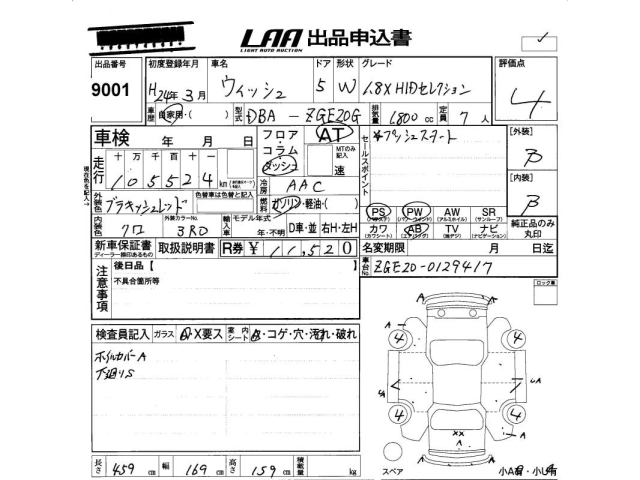 LAA 出品申込書
LIGHT AUTO AUCTION
出品番号
9001
初度登録年月 車名 ドア 形状 グレード
H24年 3月 ウィッシュ 5 W 1.8X HIDセレクション
評価点
4
車歴 自家用・( ) 型式 DBA - ZGE20G 排気量 1,800 cc 定員 7 人
車検 年 月 日
フロア AT
コラム MTのみ記入
ダッシュ 速
セールスポイント
*プッシュスタート
[外装]
B
[内装]
B
走行 十 万 千 百 十 一
105524 km
現在色を記入
冷房 AAC
燃料 ガソリン・軽油・( )
外装色 色替車は色替と記入
ブラキッシュレッド
内装色 外装カラーNo.
クロ 3R0
輸入車 モデル年式
年・不明 D車・並 右H・左H
PS PW AW SR
(パワステ) (パワーウインド) (アルミホイル) (サンルーフ)
カワ AB TV ナビ
(カワシート) (エアバッグ) (地デジ) (ナビゲーション)
純正品のみ丸印
新車保証書 取扱説明書 R券 ¥ 11,520
ディーラー捺印あるもの
名変期限 月 日迄
車台No. ZGE20-0129417
注意事項
後日品【 】
不具合箇所等
ロック車
検査員記入 ガラス A・X要ス 室内シート A・コゲ・穴・汚れ・破れ
ホイルカバーA
下廻りS
A
A
A A
4 4
A
4 4
XX
A
A
スペア
小A有・小U有
長さ 459 cm 幅 169 cm 高さ 159 cm 積載量 kg